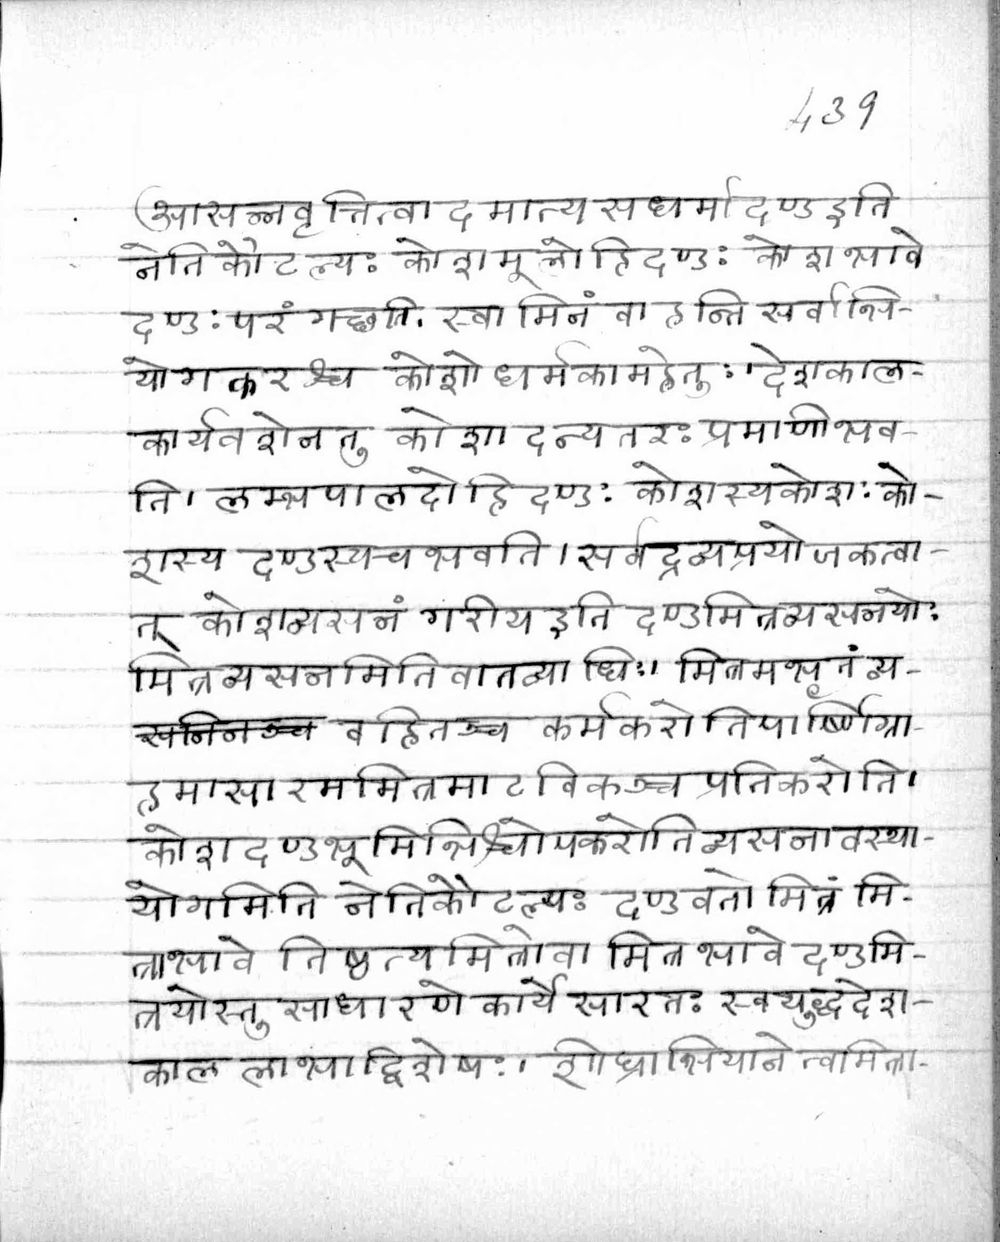 439
(आसन्नवृत्तित्वादमात्यसधर्मा दण्ड इति
नेति कौटल्यः कोशमूलो हि दण्डः कोशाभावे
दण्डः परं गच्छति. स्वामिनं वा हन्ति सर्वाभि-
योगकरश्च कोशो धर्मकामहेतुः। देशकाल-
कार्यवशेन तु कोशादन्यतरः प्रमाणीभव-
ति। लम्भपालदो हि दण्डः कोशस्य कोशः को-
शस्य दण्डस्यच भवति। सर्वद्रव्यप्रयोजकत्वा-
त् कोशव्यसनं गरीय इति दण्डमित्रव्यसनयोः
मित्रव्यसनमिति वातव्याधिः। मित्रमभृतं व्य-
सनिनञ्च वहितञ्च कर्म करोति पार्ष्णिग्रा-
हमासारममित्रमाटविकञ्च प्रतिकरोति।
कोशदण्डभूमिभिश्चोपकरोति व्यसनावस्था-
योगमिति नेति कौटल्यः दण्डवतो मित्रं मि-
त्रभावे तिष्ठत्यमित्रो वा मित्रभावे दण्डमि-
त्रयोस्तु साधारणे कार्ये सारतः स्वयुद्धदेश-
काललाभाद्विशेषः। शीघ्राभियाने त्वमित्रा-